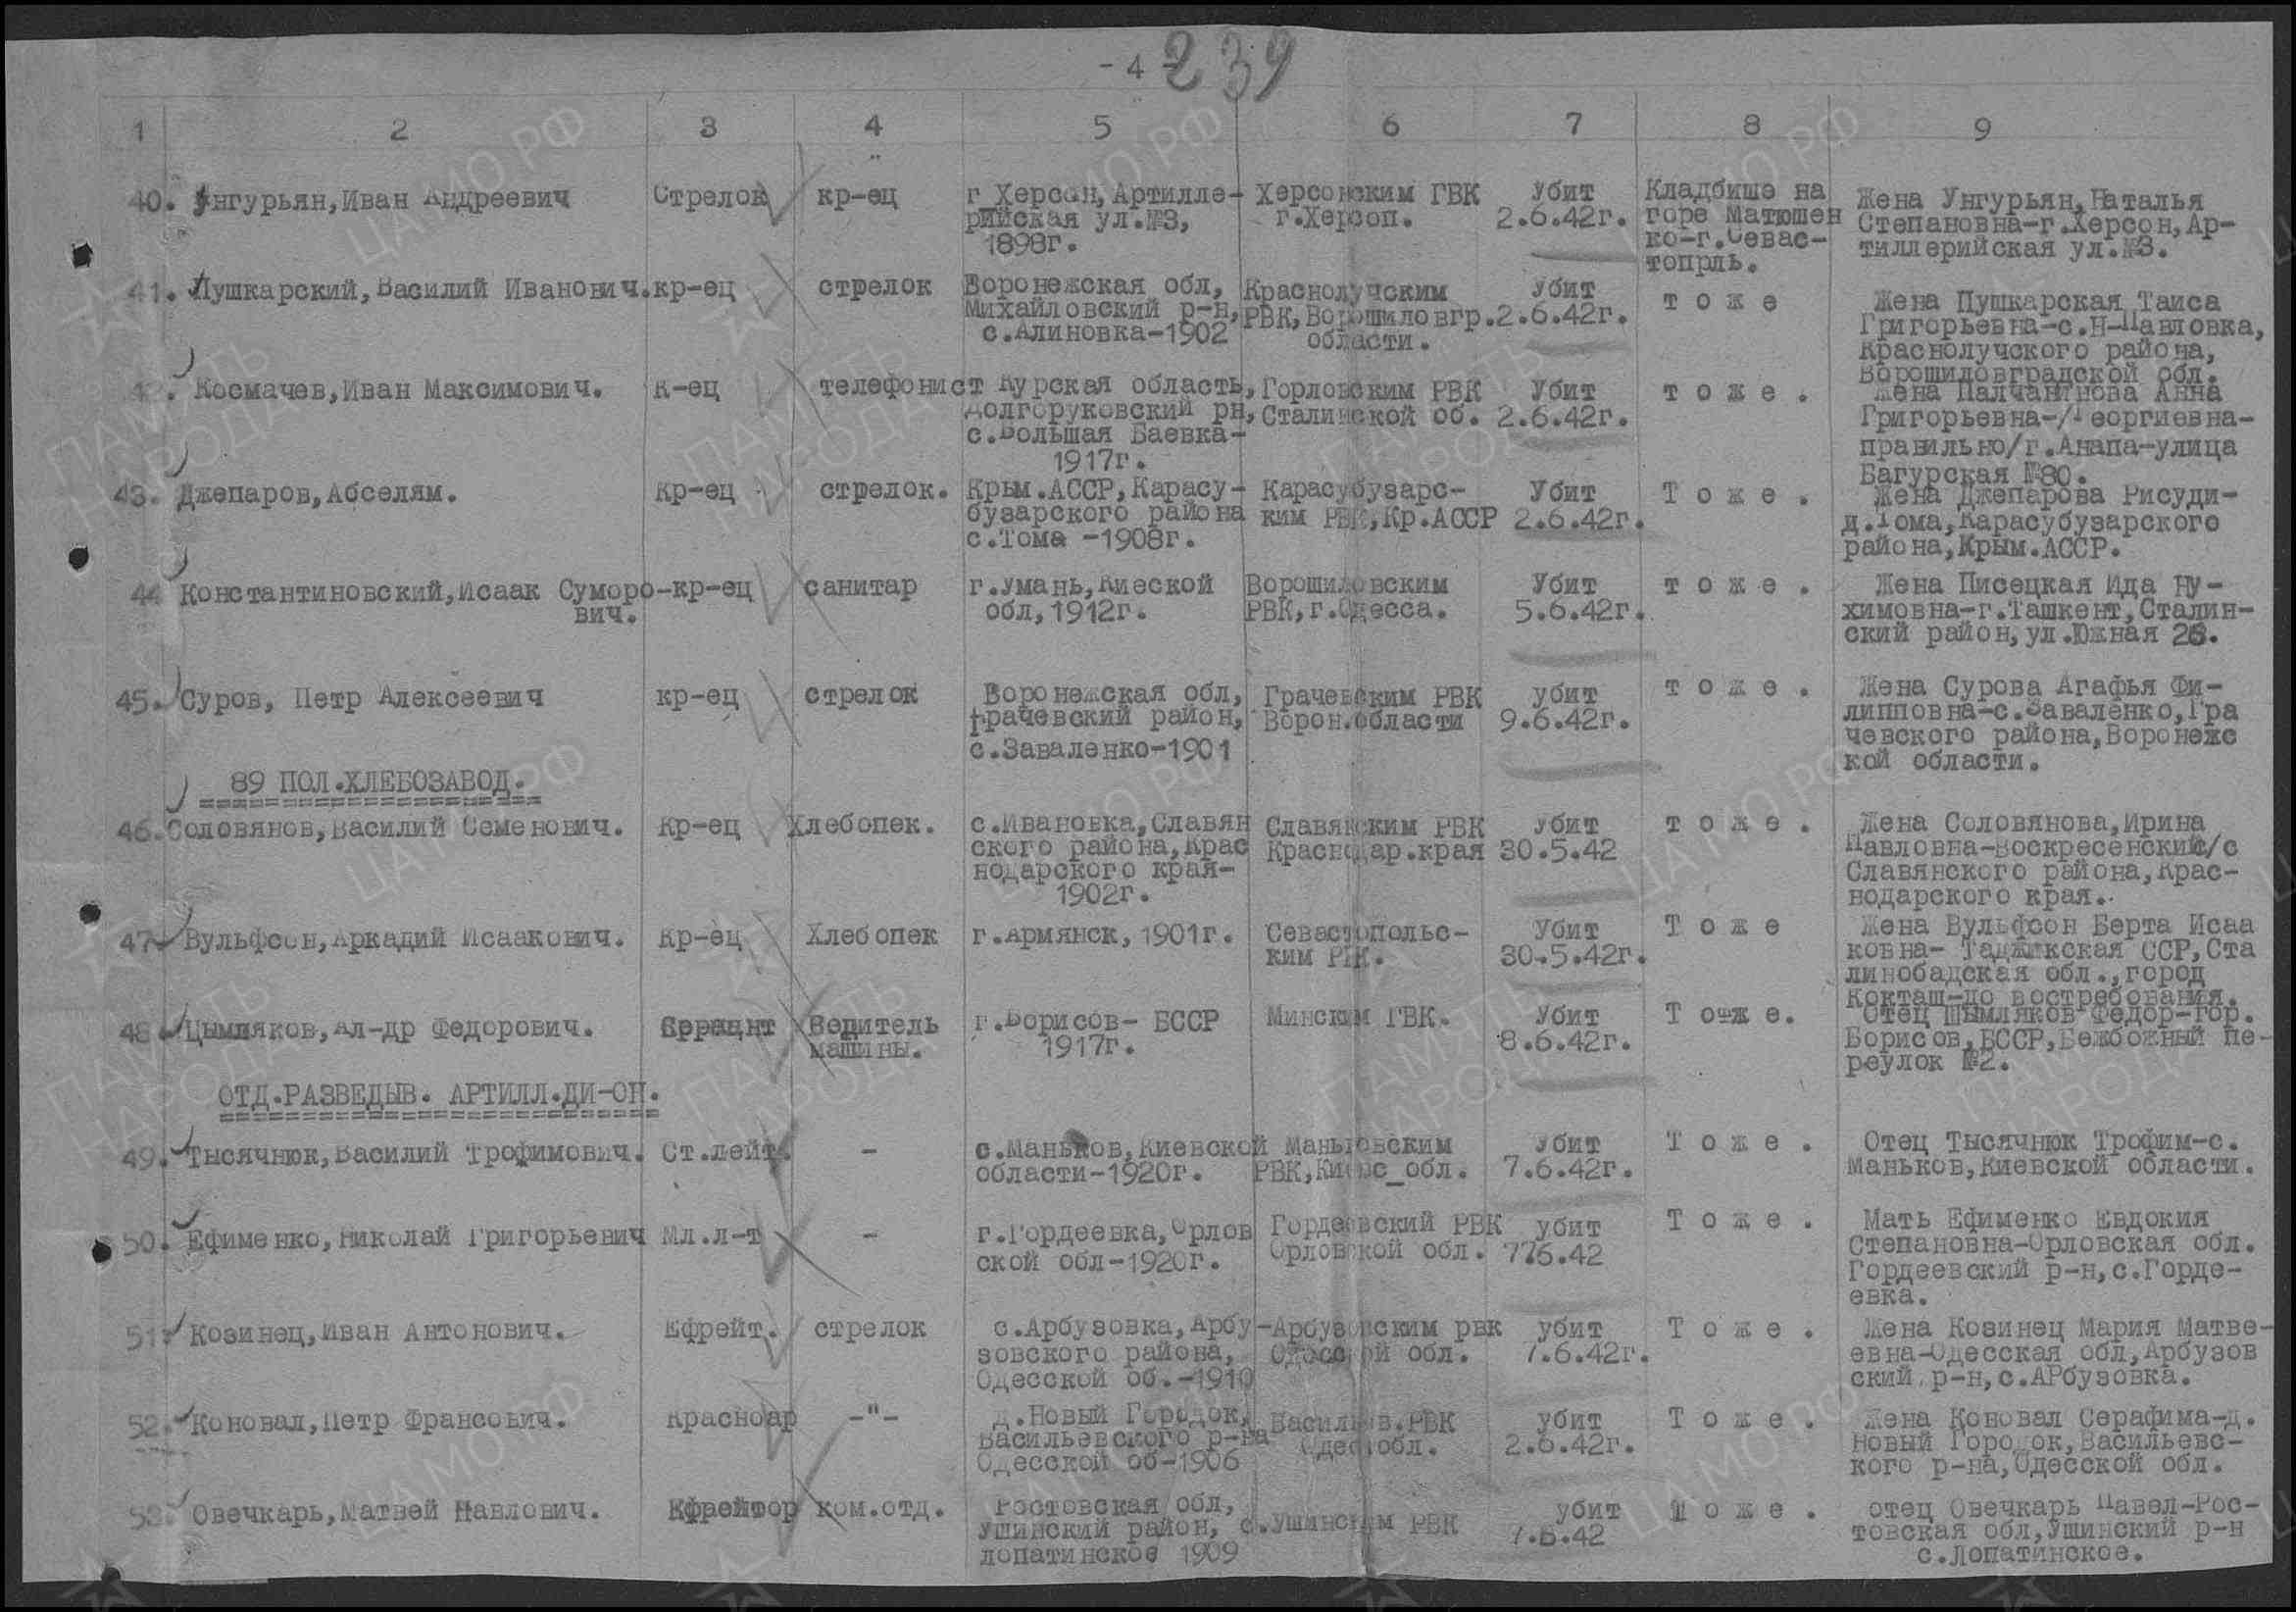 - 4 -
239
1 2 3 4 5 6 7 8 9
40. Унгурьян,Иван Андреевич Стрелок кр-ец г Херсон,Артилле- Херсонским ГВК Убит Кладбише на Жена Унгурьян,Наталья
рийская ул.№3, г.Херсоп. 2.6.42г. горе Матюшен Степановна-г.Херсон,Ар-
1898г. ко-г.Севас- тиллерийская ул.№3.
топрль.
41. Пушкарский,Василий Иванович. кр-ец стрелок Воронежская обл, Краснолучским Убит т о ж е Жена Пушкарская Таиса
Михайловский р-н, РВК,Ворошиловгр. 2.6.42г. Григорьевна-с.Н-Павловка,
с.Алиновка-1902 области. Краснолучского района,
Ворошиловградской обл.
42. Космачев,Иван Максимович. К-ец телефонист Курская область, Горловским РВК Убит т о ж е . Жена Палчанинова Анна
Долгоруковский рн, Сталинской об. 2.6.42г. Григорьевна-/Георгиевна-
с.Большая Баевка- правильно/г.Анапа-улица
1917г. Багурская №80.
43. Джепаров,Абселям. Кр-ец стрелок. Крым.АССР,Карасу- Карасубузарс- Убит Т о ж е . Жена Джепарова Рисуди-
бузарского района ким РВК,Кр.АССР 2.6.42г. д.Тома,Карасубузарского
с.Тома -1908г. района,Крым.АССР.
44 Константиновский,Исаак Суморо- кр-ец санитар г.Умань,Киеской Ворошиловским Убит т о ж е . Жена Писецкая Ида Ну-
вич. обл,1912г. РВК,г.Одесса. 5.6.42г. химовна-г.Ташкент,Сталин-
ский район,ул.Южная 26.
45. Суров, Петр Алексеевич кр-ец стрелок Воронежская обл, Грачевским РВК убит т о ж е . Жена Сурова Агафья Фи-
Грачевский район, Ворон.области 9.6.42г. липповна-с.Заваленко,Гра
с.Заваленко-1901 чевского района,Воронежс
кой области.
89 ПОЛ.ХЛЕБОЗАВОД.
46. Соловянов,Василий Семенович. Кр-ец Хлебопек. с.Ивановка,Славян Славянским РВК убит т о ж е . Жена Соловянова,Ирина
ского района,Крас Краснодар.края 30.5.42 Павловна-Воскресенский/с
нодарского края- Славянского района,Крас-
1902г. нодарского края.
47. Вульфсон,Аркадий Исаакович. Кр-ец Хлебопек г.Армянск,1901г. Севастопольс- Убит Т о ж е Жена Вульфсон Берта Исаа
ким РВК. 30.5.42г. ковна- Таджикская ССР,Ста
линобадская обл.,город
Кокташ-до востребования.
48. Цымляков,Ал-др Федорович. Сержант Водитель г.Борисов- БССР Минским ГВК. Убит Т о ж е. Отец Цымляков Федор-гор.
машины. 1917г. 8.6.42г. Борисов,БССР,Безбожный пе-
реулок №2.
ОТД.РАЗВЕДЫВ. АРТИЛЛ.ДИ-ОН.
49. Тысячнюк,Василий Трофимович. Ст.лейт. - с.Маньков,Киевской Маньковским убит Т о ж е . Отец Тысячнюк Трофим-с.
области-1920г. РВК,Киевс_обл. 7.6.42г. Маньков,Киевской области.
50. Ефименко,Николай Григорьевич Мл.л-т - г.Гордеевка,Орлов Гордеевский РВК убит Т о ж е . Мать Ефименко Евдокия
ской обл-1920г. Орловской обл. 7.6.42 Степановна-Орловская обл.
Гордеевский р-н,с.Горде-
евка.
51. Козинец,Иван Антонович. Ефрейт. стрелок с.Арбузовка,Арбу- Арбузовским рвк убит Т о ж е . Жена Козинец Мария Матве-
зовского района, Одесской обл. 7.6.42г. евна-Одесская обл,Арбузов
Одесской об.-1910 ский р-н,с.АРбузовка.
52. Коновал,Петр Франсович. Красноар -"- д.Новый Городок, Васильев.РВК убит Т о ж е . Жена Коновал Серафима-д.
Васильевского р-на Одес обл. 2.6.42г. Новый Городок,Васильевс-
Одесской об-1906 кого р-на,Одесской обл.
53. Овечкарь,Матвей Павлович. Ефрейтор ком.отд. Ростовская обл, с.Ушинским РВК убит Т о ж е . отец Овечкарь Павел-Рос-
Ушинский район, 7.6.42 товская обл,Ушинский р-н
лопатинское 1909 с.Лопатинское.
ПАМЯТЬ НАРОДА
ЦАМО РФ